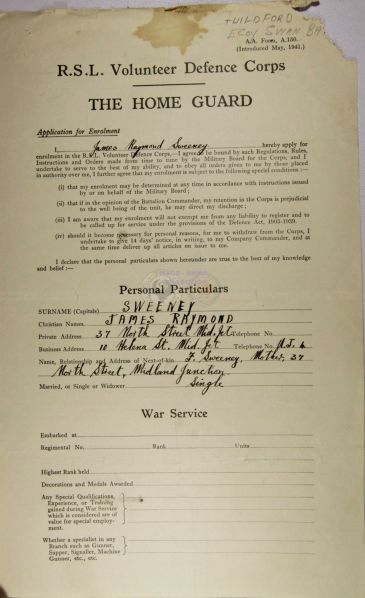 GUILDFORD
ECOY SWAN BA
A.A. Form, A.150.
(Introduced May, 1941.)
R.S.L. Volunteer Defence Corps
THE HOME GUARD
Application for Enrolment
I, James Raymond Sweeney hereby apply for
enrolment in the R.S.L. Volunteer Defence Corps,—I agree to be bound by such Regulations, Rules,
Instructions and Orders made from time to time by the Military Board for the Corps, and I
undertake to serve to the best of my ability, and to obey all orders given to me by those placed
in authority over me, I further agree that my enrolment is subject to the following special conditions :—
(i) that my enrolment may be determined at any time in accordance with instructions issued
by or on behalf of the Military Board ;
(ii) that if in the opinion of the Battalion Commander, my retention in the Corps is prejudicial
to the well being of the unit, he may direct my discharge ;
(iii) I am aware that my enrolment will not exempt me from any liability to register and to
be called up for service under the provisions of the Defence Act, 1903-1939.
(iv) should it become necessary for personal reasons, for me to withdraw from the Corps, I
undertake to give 14 days' notice, in writing, to my Company Commander, and at
the same time deliver up all articles on issue to me.
I declare that the personal particulars shown hereunder are true to the best of my knowledge
and belief :—
Personal Particulars
SURNAME (Capitals) SWEENEY
Christian Names JAMES RAYMOND
Private Address 37 North Street Mid. Jct. Telephone No.
Business Address 10 Helena St. Mid. Jct Telephone No. M.J. 4
Name, Relationship and Address of Next-of-kin F. Sweeney, Mother, 37
North Street, Midland Junction.
Married, or Single or Widower Single
War Service
Embarked at
Regimental No. Rank Units
Highest Rank held
Decorations and Medals Awarded
Any Special Qualifications,
Experience, or Training
gained during War Service
which is considered are of
value for special employ-
ment.
Whether a specialist in any
Branch such as Gunner,
Sapper, Signaller, Machine
Gunner, etc., etc.